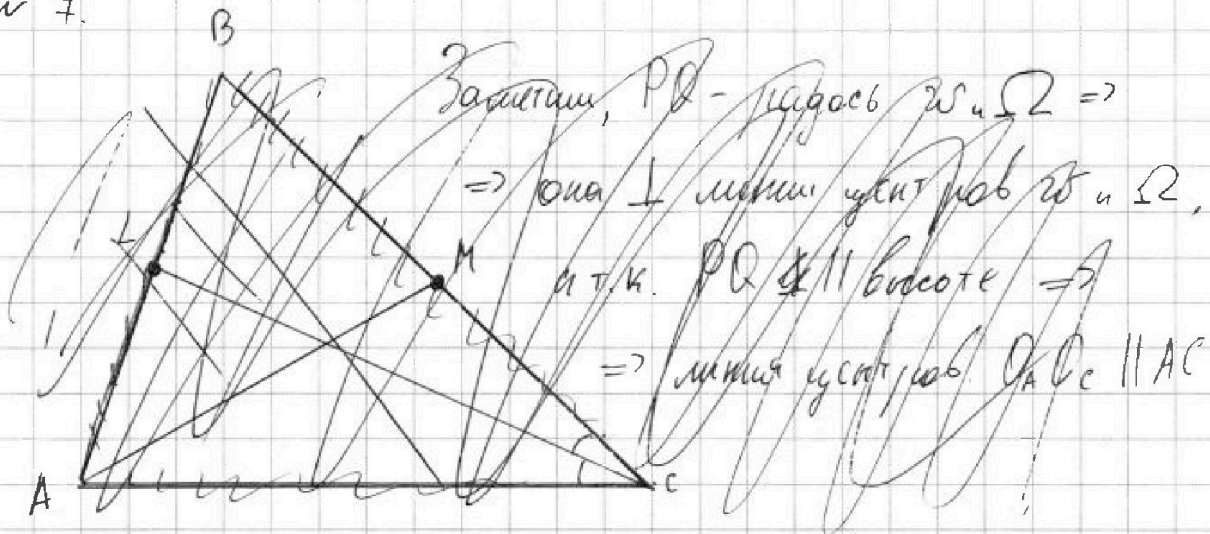 № 7.
B
Заметим, PQ - радось w и Ω =>
=> она ⊥ линии центров w и Ω,
M
и т.к. PQ || высоте =>
=> линия центров O_A O_C || AC
A
C